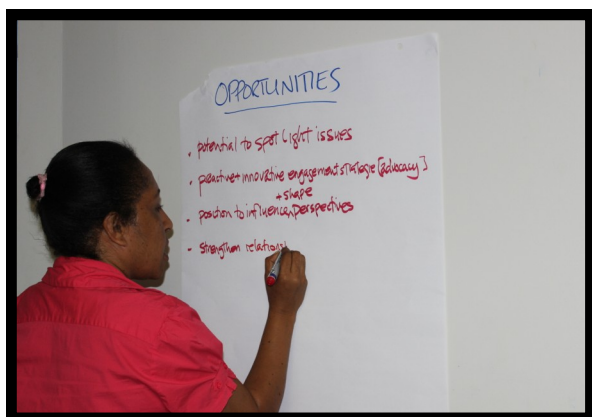 OPPORTUNITIES
• potential to spotlight issues
• proactive + innovative engagement strategie [advocacy]
+ shape
• position to influence perspectives
- strengthen relations